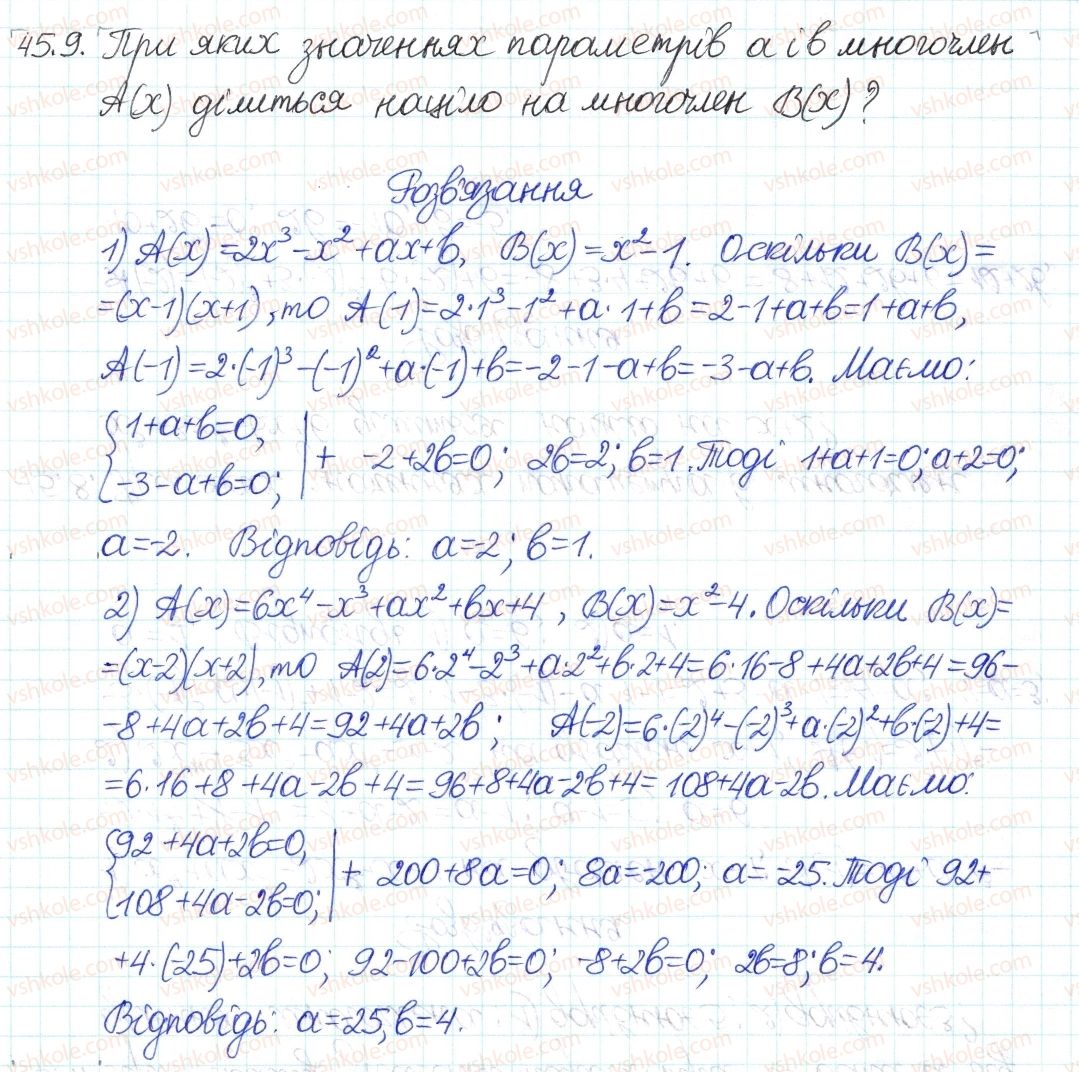 45.9. При яких значеннях параметрів a і b многочлен
A(x) ділиться націло на многочлен B(x)?
Розв'язання
1) A(x)=2x³-x²+ax+b, B(x)=x²-1. Оскільки B(x)=
=(x-1)(x+1), то A(1)=2·1³-1²+a·1+b=2-1+a+b=1+a+b,
A(-1)=2·(-1)³-(-1)²+a·(-1)+b=-2-1-a+b=-3-a+b. Маємо:
{1+a+b=0,
{-3-a+b=0; | + -2+2b=0; 2b=2; b=1. Тоді 1+a+1=0; a+2=0;
a=-2. Відповідь: a=-2; b=1.
2) A(x)=6x⁴-x³+ax²+bx+4, B(x)=x²-4. Оскільки B(x)=
=(x-2)(x+2), то A(2)=6·2⁴-2³+a·2²+b·2+4=6·16-8+4a+2b+4=96-
-8+4a+2b+4=92+4a+2b; A(-2)=6·(-2)⁴-(-2)³+a·(-2)²+b·(-2)+4=
=6·16+8+4a-2b+4=96+8+4a-2b+4=108+4a-2b. Маємо:
{92+4a+2b=0,
{108+4a-2b=0; | + 200+8a=0; 8a=-200; a=-25. Тоді 92+
+4·(-25)+2b=0; 92-100+2b=0; -8+2b=0; 2b=8; b=4.
Відповідь: a=-25, b=4.